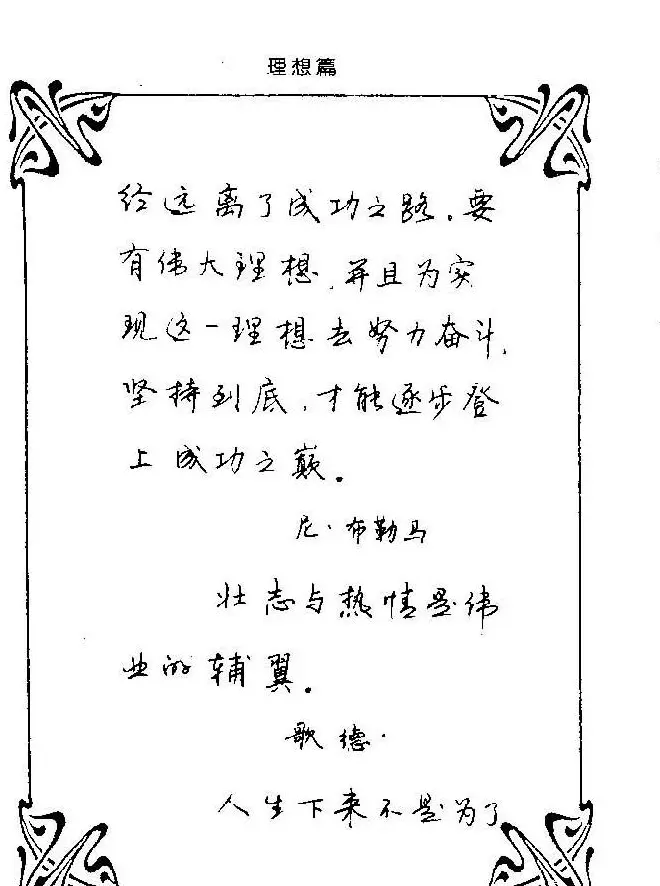 理想篇
经远离了成功之路。要
有伟大理想，并且为实
现这一理想去努力奋斗，
坚持到底，才能逐步登
上成功之巅。
尼·布勒马
壮志与热情是伟
业的辅翼。
歌德·
人生下来不是为了